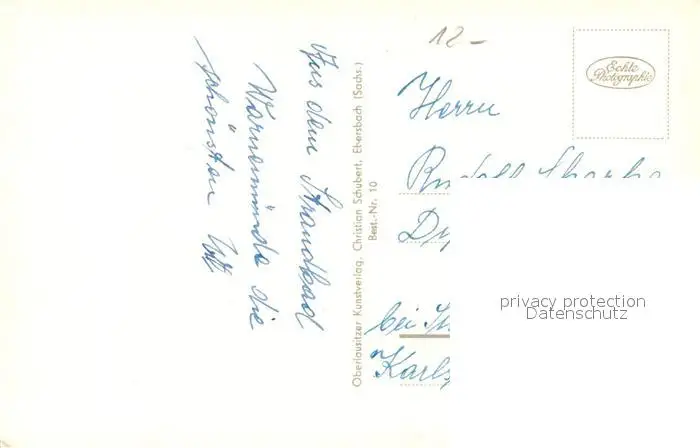 12.-
Echte
Photographie
Herrn
Rudolf
bei
Aus dem Strandbad
Warnemünde die
schönsten
Oberlausitzer Kunstverlag, Christian Schubert, Ebersbach (Sachs.)
Best.-Nr. 10
privacy protection
Datenschutz